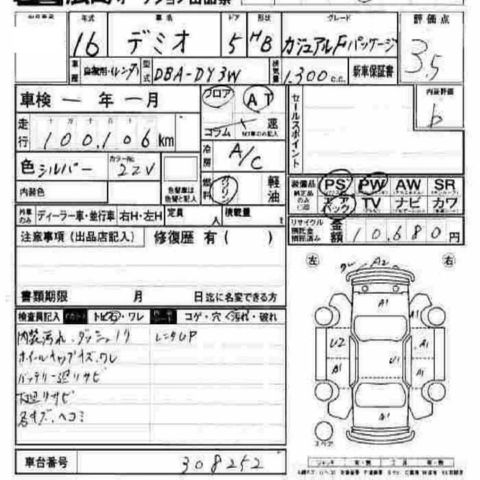 年式 車名 ドア 形状 グレード 評価点
16 デミオ 5 HB カジュアルFパッケージ 3.5
車歴 自家用・(レンタ) 型式 DBA-DY3W 排気量 1,300 c.c. 新車保証書
車検 ー 年 ー 月 フロア AT セールスポイント 内装評価
走行 100,106 km コラム 速 b
色 シルバー カラーNo. 22V 冷房 A/C
内装色 燃料 ガソリン 軽油 装備品 PS PW AW SR
エアバック TV ナビ カワ
外車のみ ディーラー車・並行車 右H・左H 定員 人 積載量 リサイクル預託金 金額 10,680 円
注意事項（出品店記入） 修復歴 有（ ）
左 右
A2
A1
書類期限 月 日迄に名変できる方
検査員記入 トビ石・ワレ コゲ・穴・汚れ・破れ
内装汚れ、ダッシュ
ホイールキャップキズ、ワレ
バッテリー廻りサビ
下廻りサビ
各キズ、ヘコミ
U2 A1
A1 U1 A1
A1
スペア
車台番号 308252